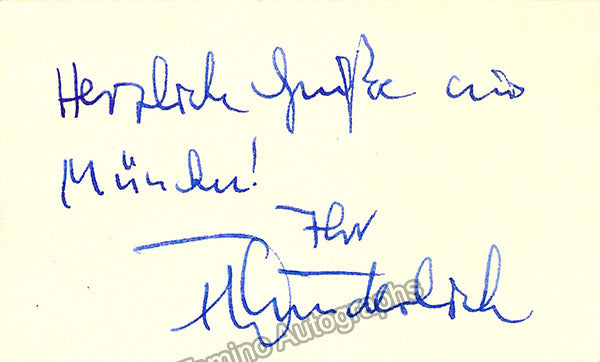 Herzliche Grüße aus
München!
Ihr
F Wunderlich
Tamino Autographs